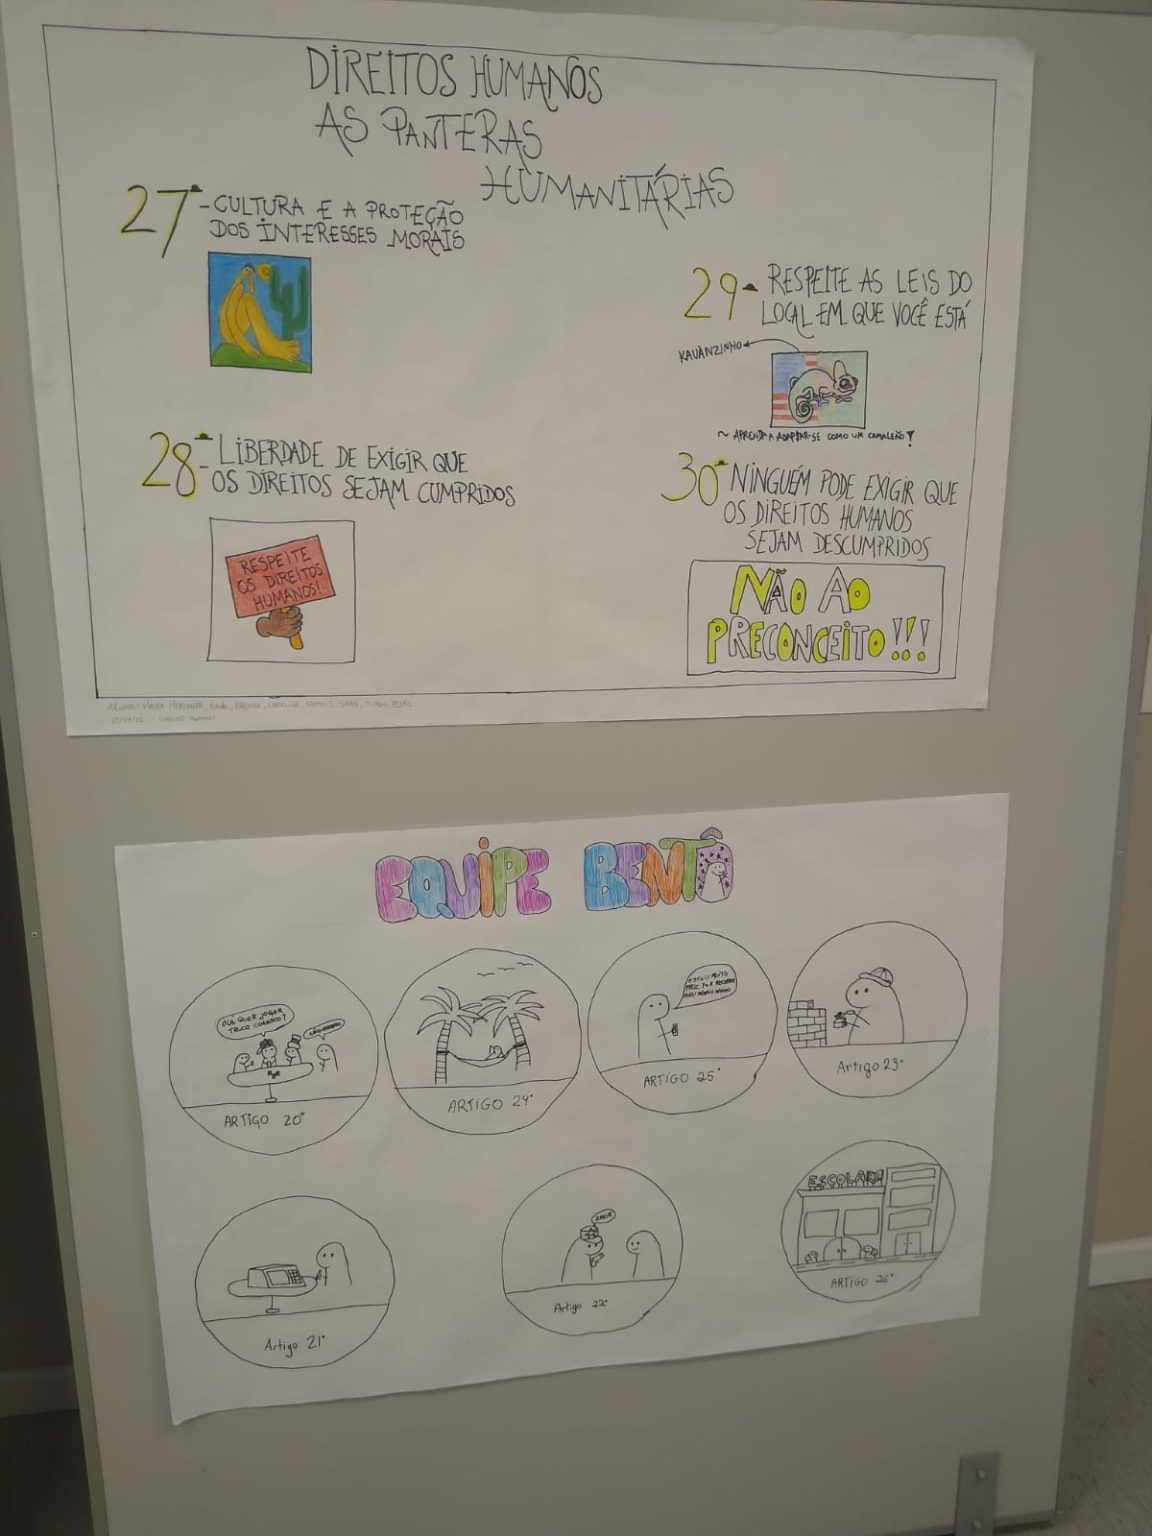 DIREITOS HUMANOS
AS PANTERAS
HUMANITÁRIAS
27ª - CULTURA E A PROTEÇÃO
DOS INTERESSES MORAIS
28ª - LIBERDADE DE EXIGIR QUE
OS DIREITOS SEJAM CUMPRIDOS
RESPEITE
OS DIREITOS
HUMANOS!
29ª RESPEITE AS LEIS DO
LOCAL EM QUE VOCÊ ESTÁ
KAUÃNZINHO
~ APRENDA A ADAPTAR-SE COMO UM CAMALEÃO!
30ª NINGUÉM PODE EXIGIR QUE
OS DIREITOS HUMANOS
SEJAM DESCUMPRIDOS
NÃO AO
PRECONCEITO!!!
DIREITOS HUMANOS
EQUIPE BENTÔ
OLÁ QUER JOGAR
TRUCO CONOSCO?
ARTIGO 20°
ARTIGO 24°
ESTOU MUITO
FELIZ POR RECEBER
ARTIGO 25°
Artigo 23°
Artigo 21°
Artigo 22°
ESCOLA
ARTIGO 26°